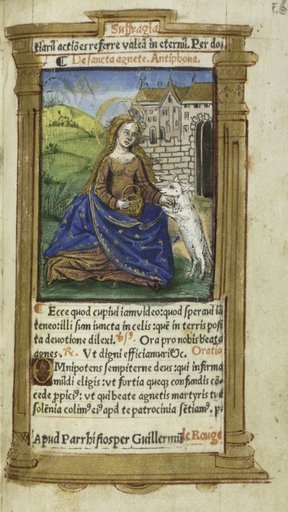 Suffragia
tiarū actiões referre valeā in eternū. Per do3
De sancta agnete. Antiphona.
Ecce quod cupiui iam video: quod speraui iā
teneo: illi sum iuncta in celis: quē in terris posi
ta deuotione dilexi. V̓s̓. Ora pro nobis beata
agnes. R̓. Ut digni efficiamur &c. Oratio
OMnipotens sempiterne deus: qui infirma
mūdi eligis: vt fortia queq3 confundis cō
cede ꝓpici⁹: vt qui beate agnetis martyris tue
solēnia colim⁹ ei⁹ apd te patrocinia sētiam⁹. p
Apud Parrhisios per Guillermū le Rouge